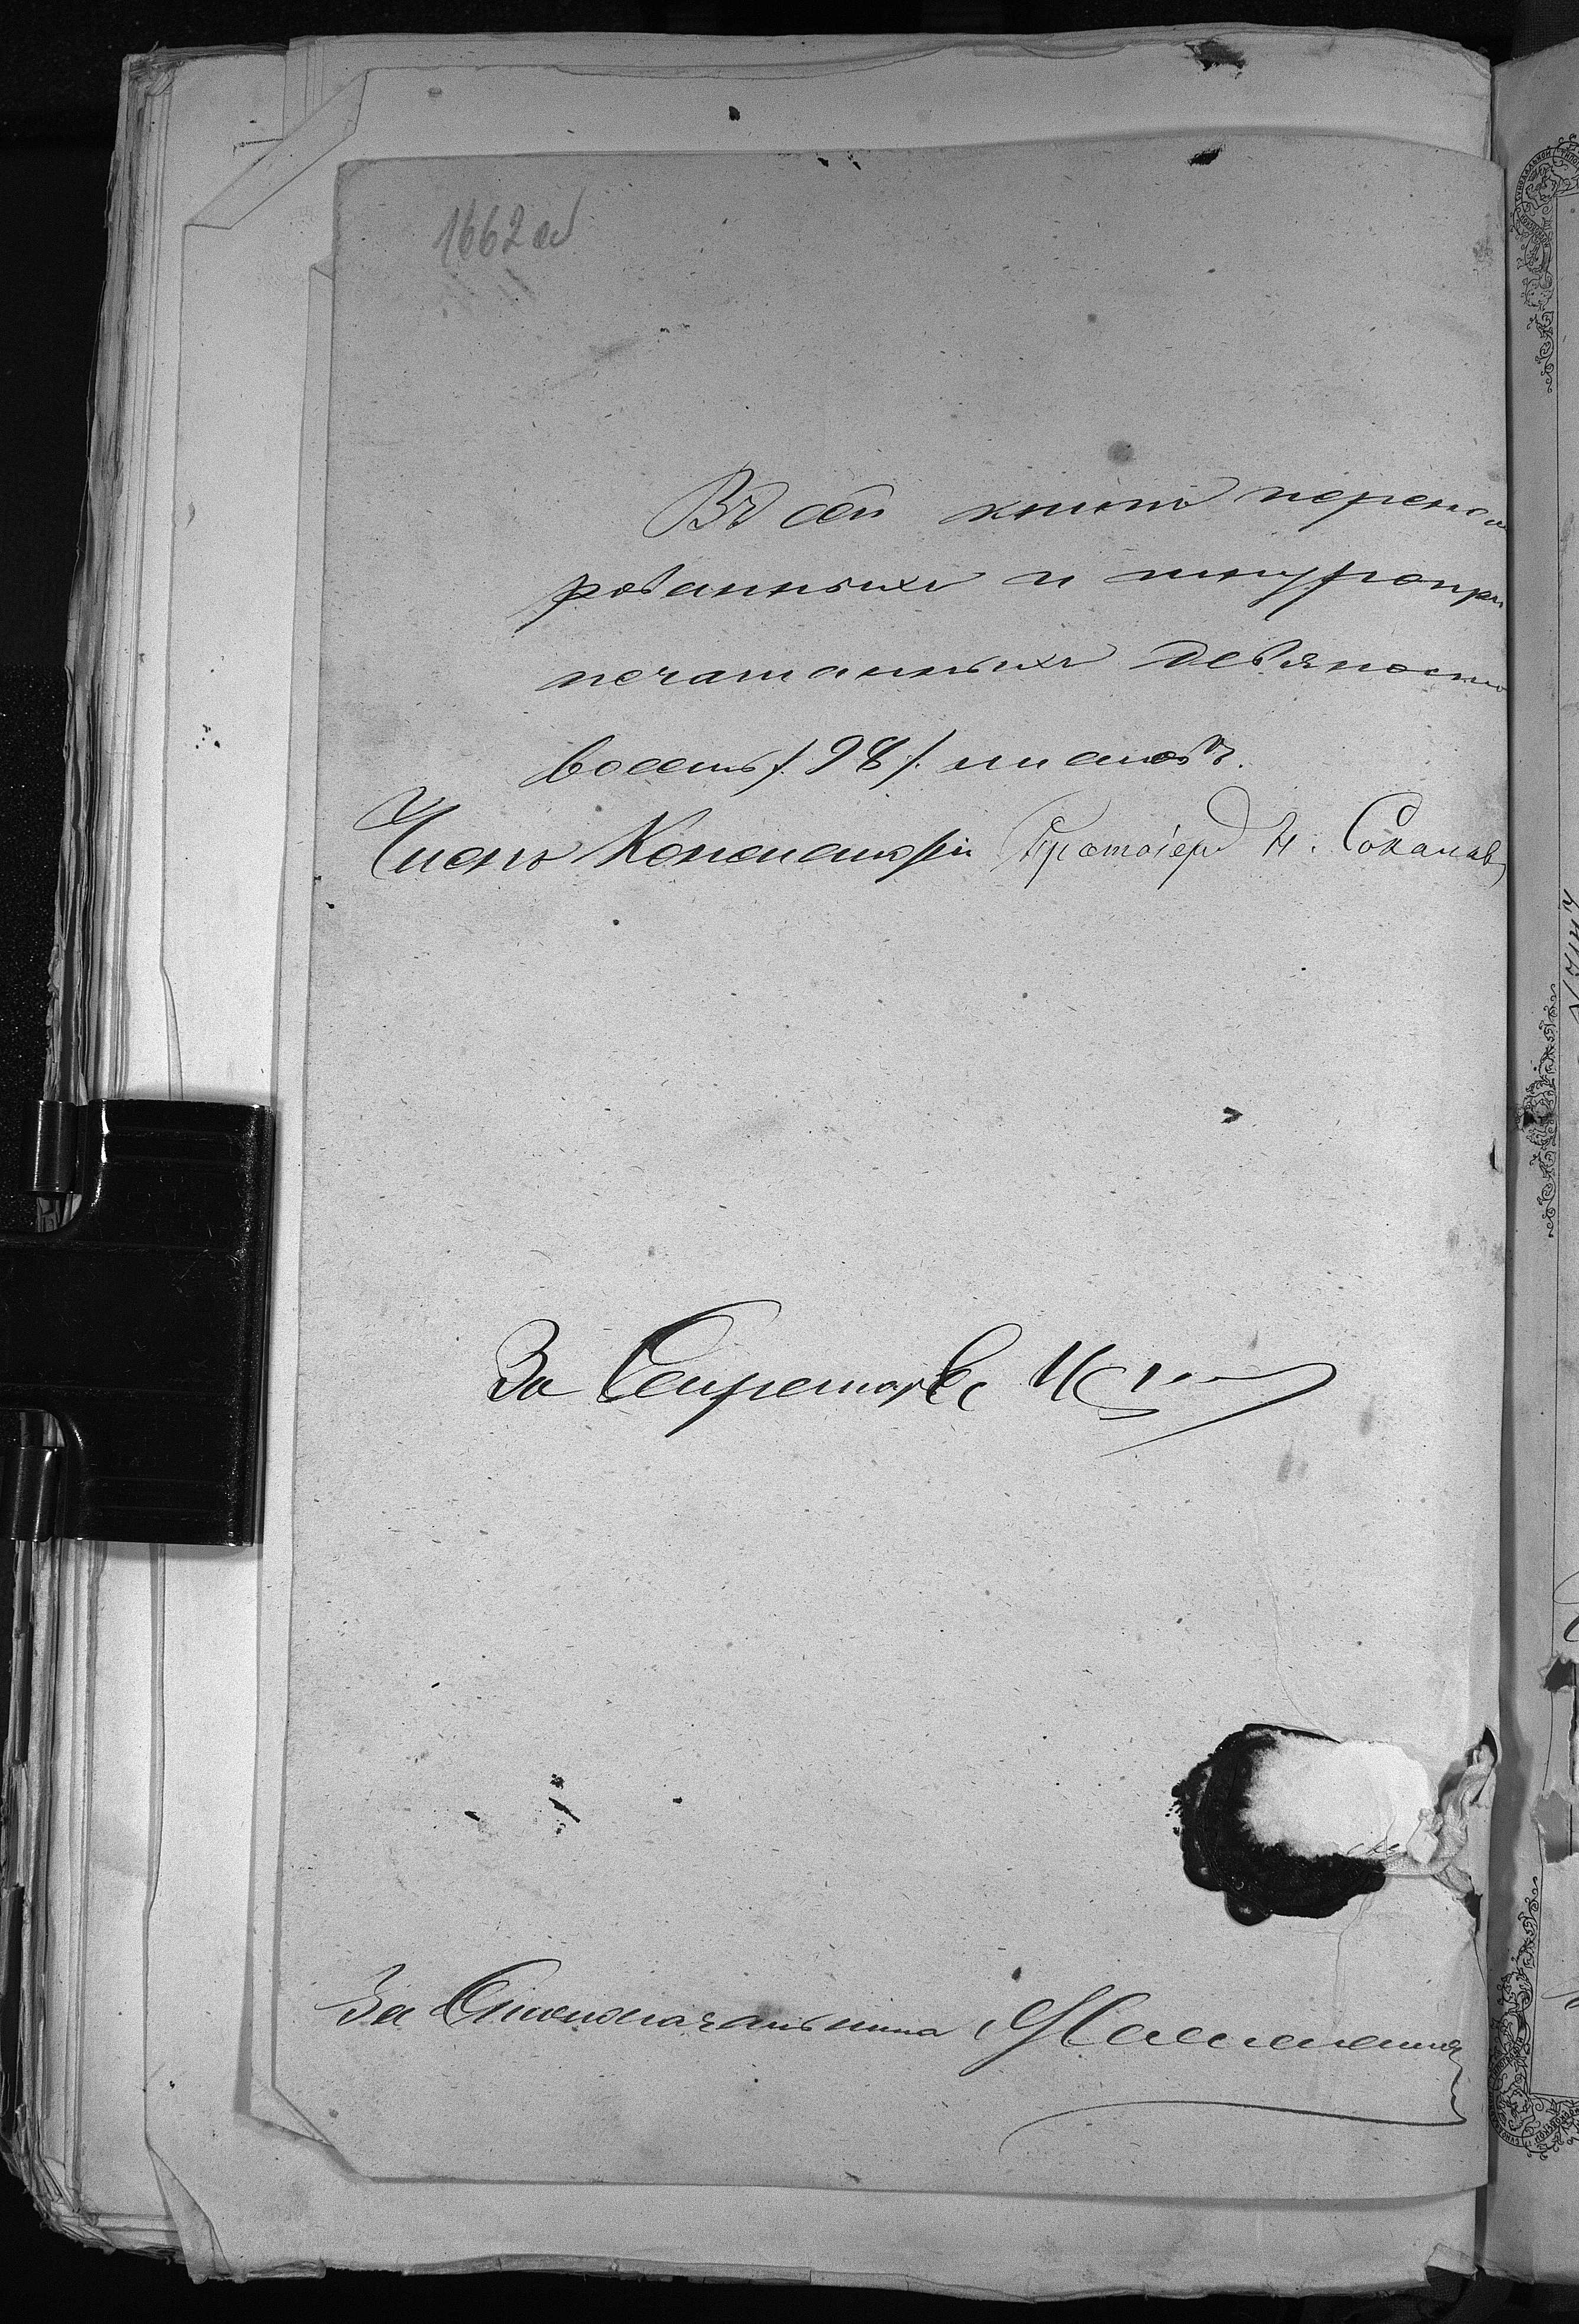 1662 об
Въ сей книгѣ перенуме
рованныхъ и шнуропри
печатанныхъ девяносто
восемь /. 98 /. листовъ.
Членъ Консисторіи Протоіерей Н. Соколовъ
За Секретаря
За Столоначальника